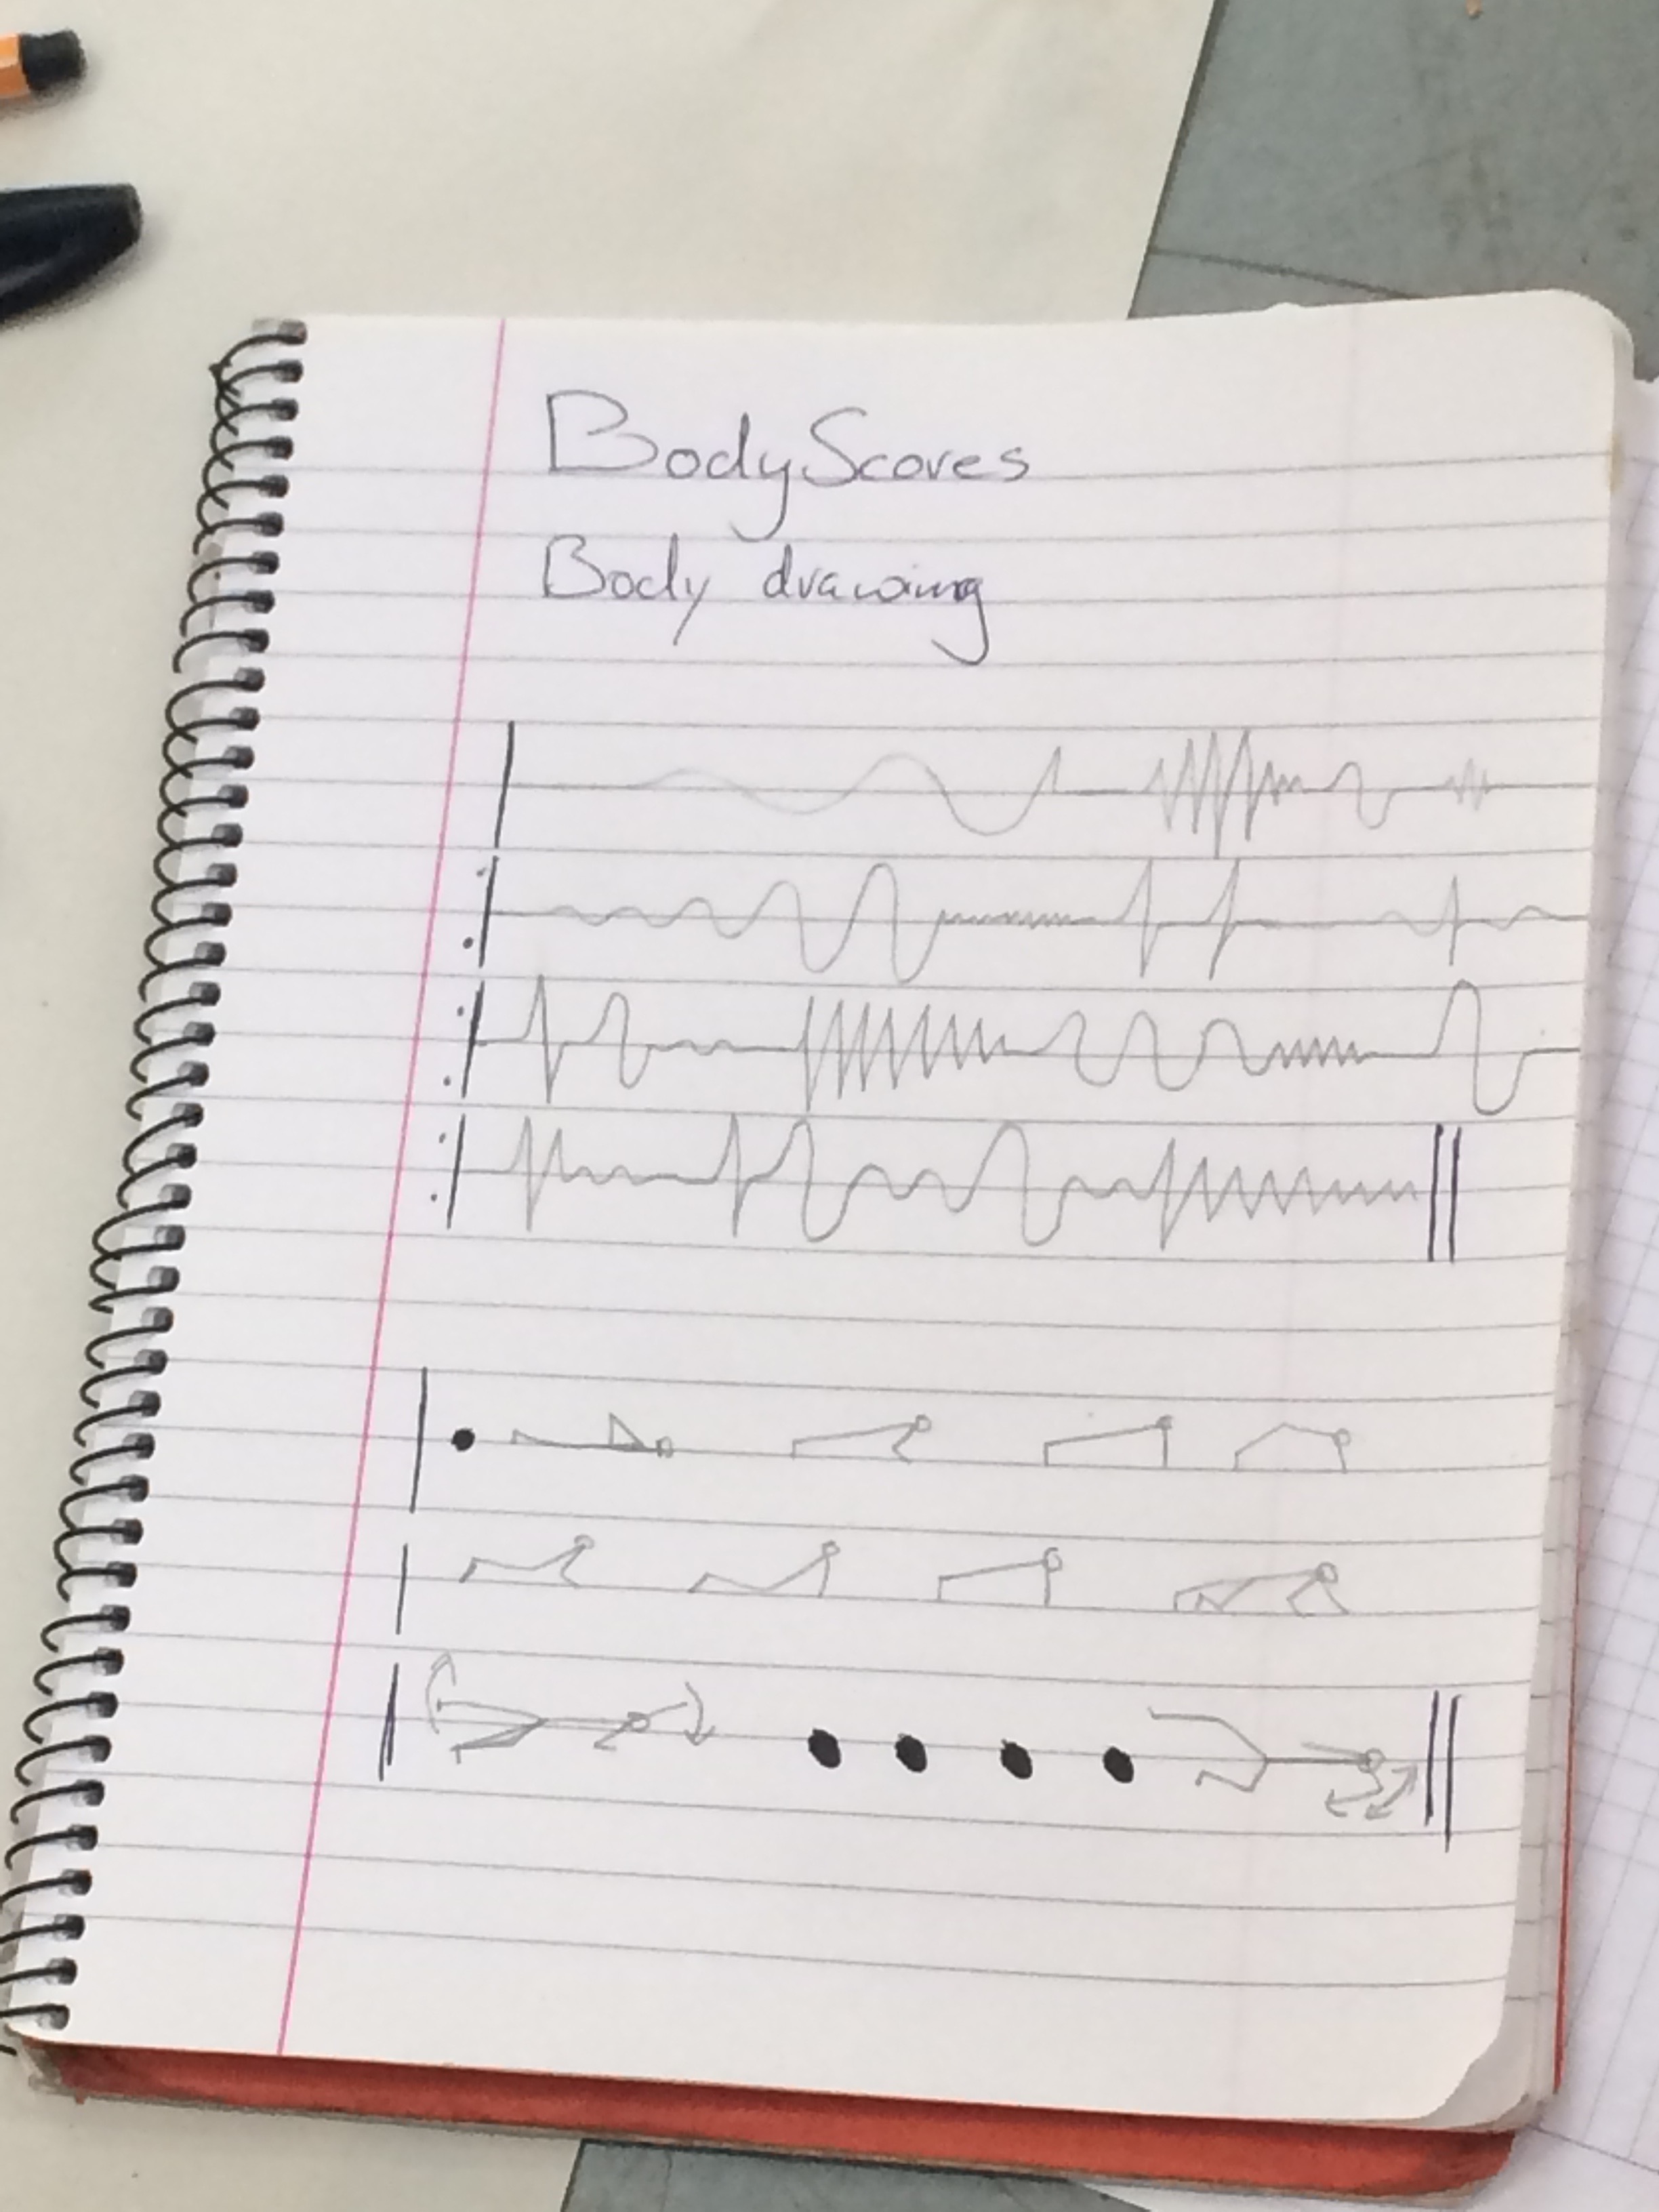 BodyScores
Body drawing